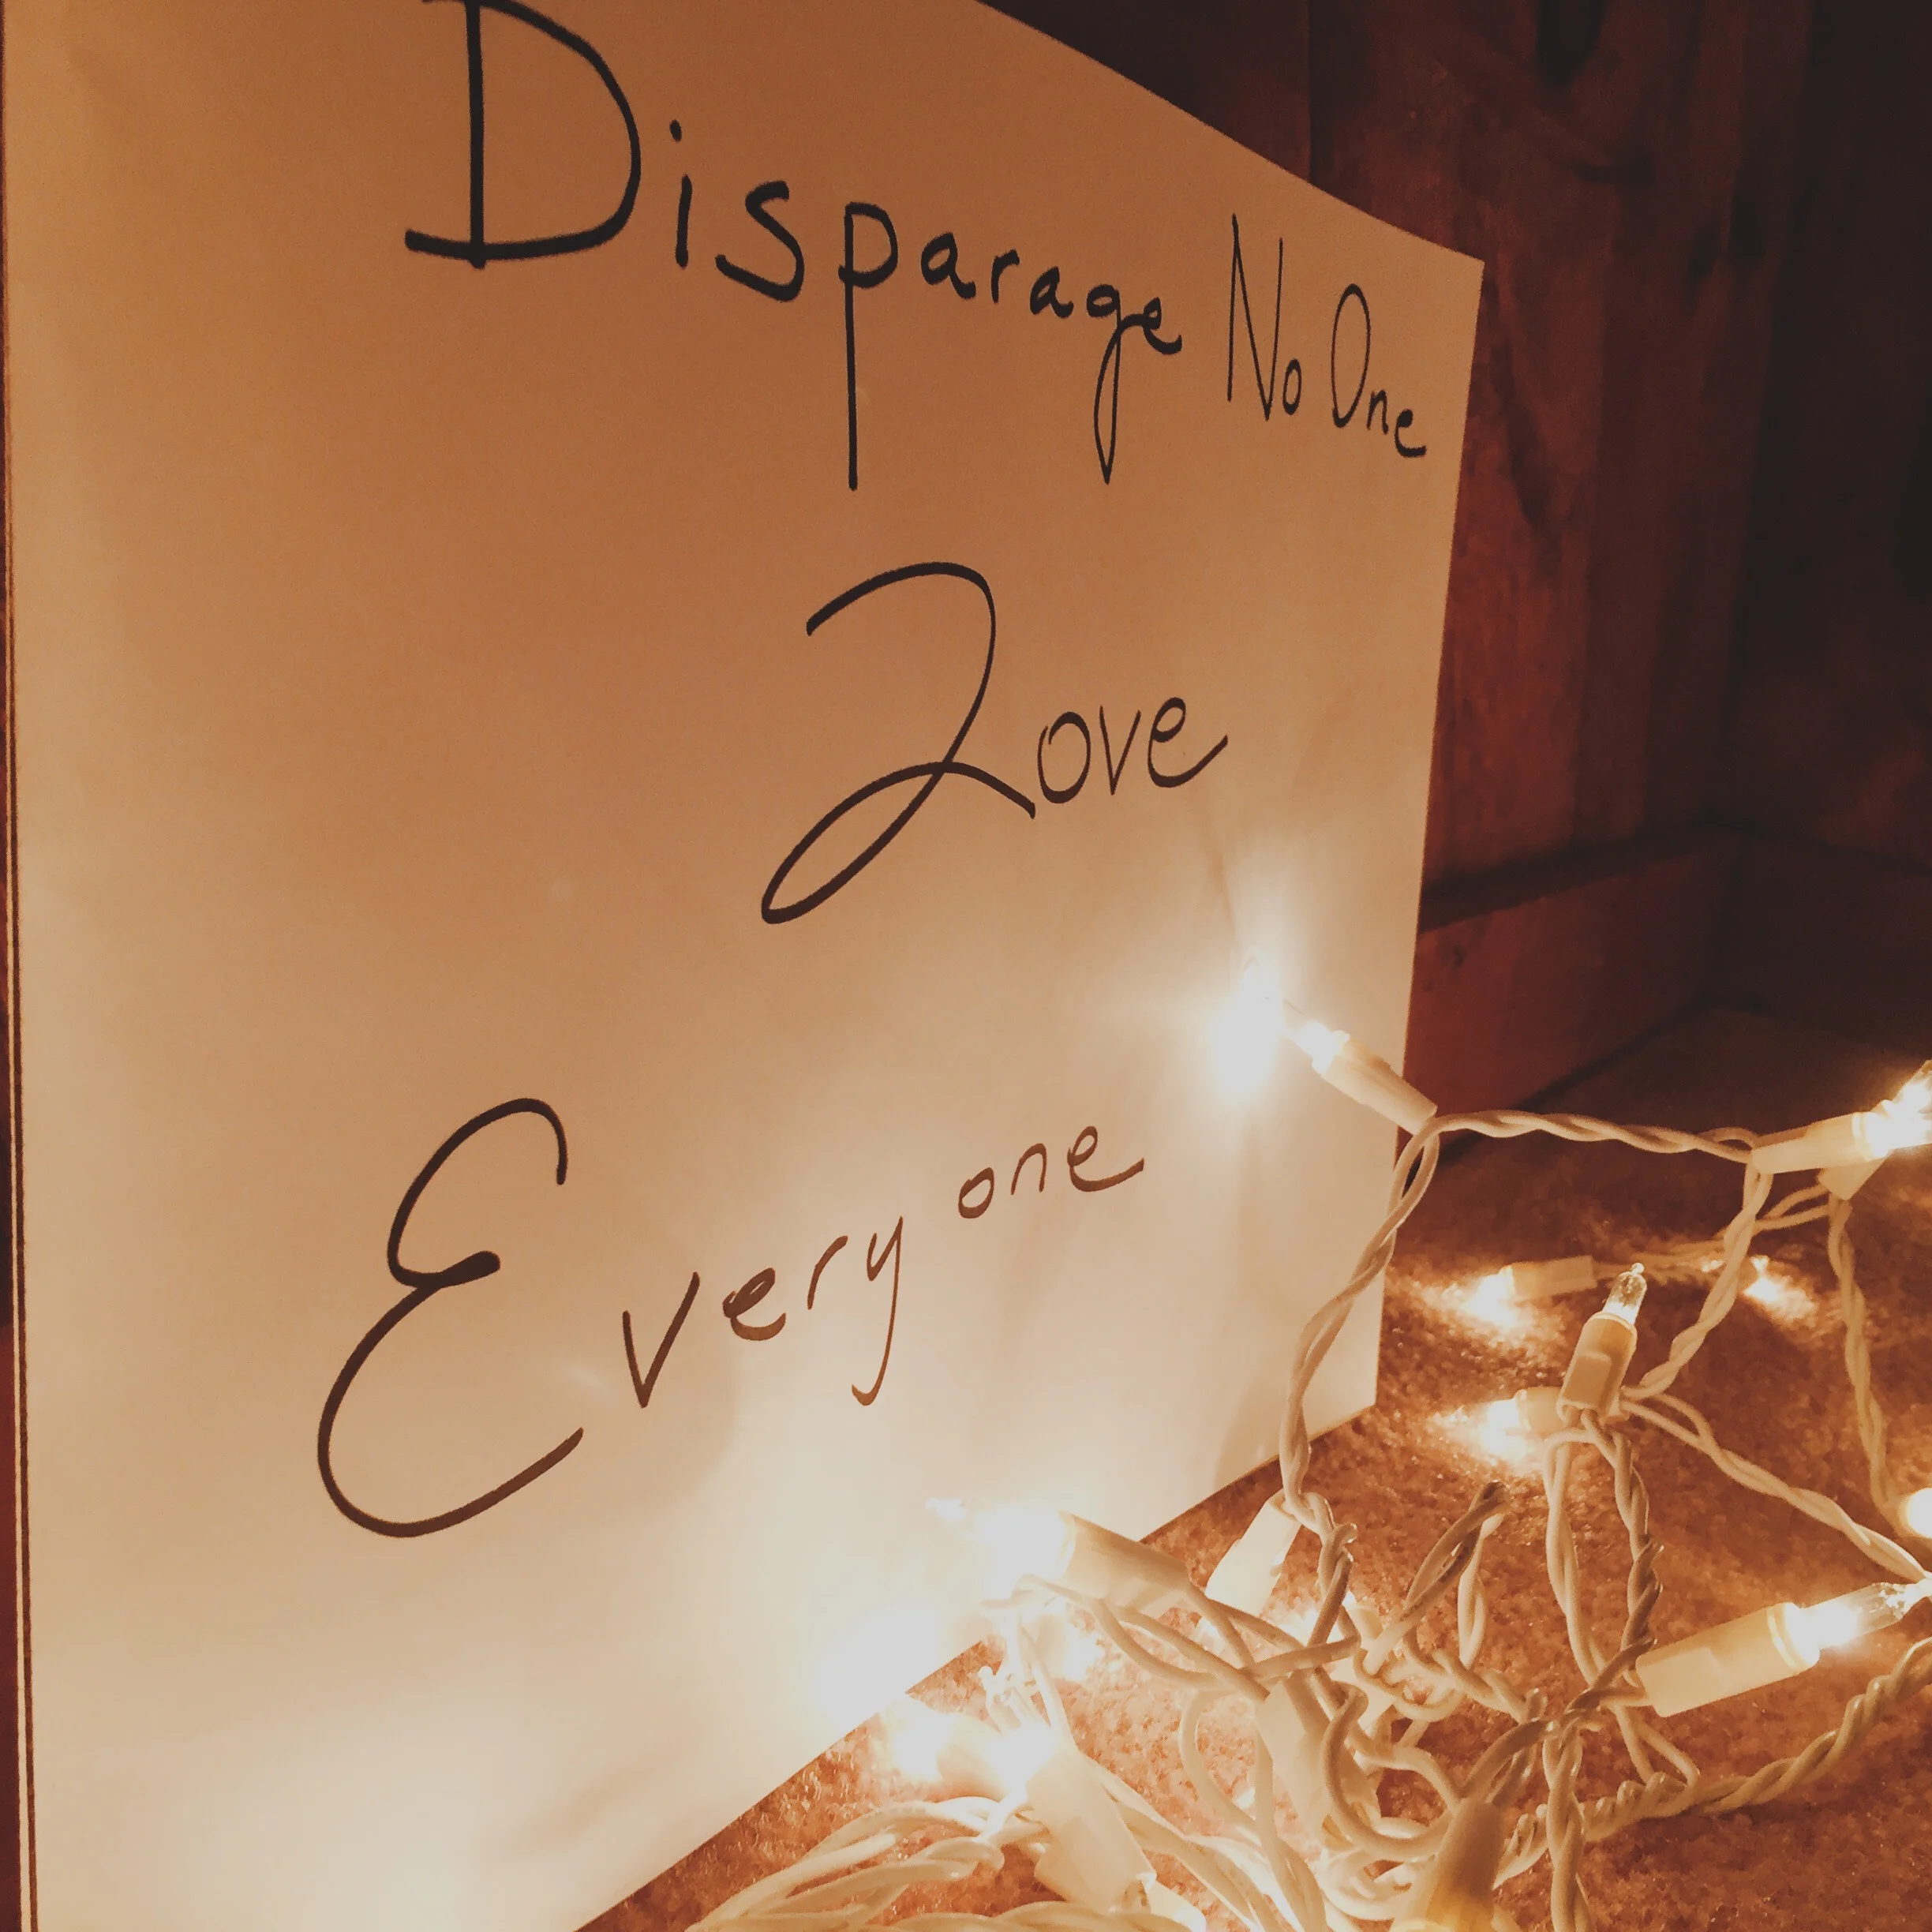 Disparage No One
Love
Every one